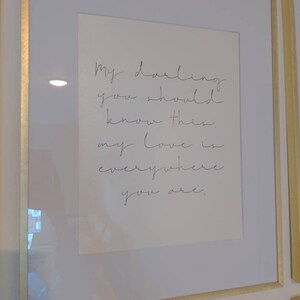 My darling
you should
know this.
my love is
everywhere
you are.